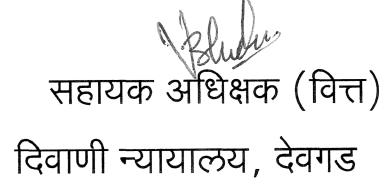 सहायक अधिक्षक (वित्त)
दिवाणी न्यायालय, देवगड